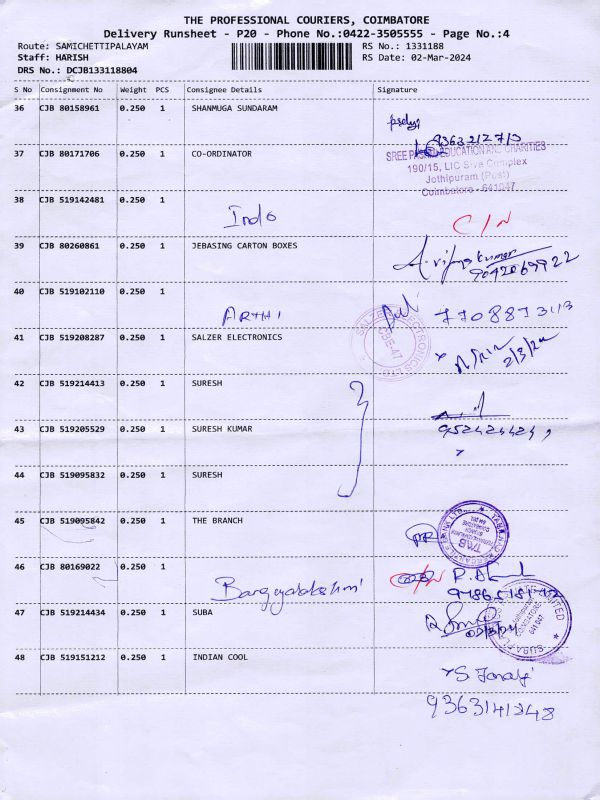 THE PROFESSIONAL COURIERS, COIMBATORE
Delivery Runsheet - P20 - Phone No.:0422-3505555 - Page No.:4
Route: SAMICHETTIPALAYAM RS No.: 1331188
Staff: HARISH RS Date: 02-Mar-2024
DRS No.: DCJB133118804
S No Consignment No Weight PCS Consignee Details Signature
36 CJB 80158961 0.250 1 SHANMUGA SUNDARAM
37 CJB 80171706 0.250 1 CO-ORDINATOR
EDUCATION AND CHARITIES
190/15, LIC Siva Complex
Jothipuram (Post)
Coimbatore - 641047
38 CJB 519142481 0.250 1 Indo C/N
39 CJB 80260861 0.250 1 JEBASING CARTON BOXES
A. vijayakumar
9042069922
40 CJB 519102110 0.250 1 ARTHI
41 CJB 519208287 0.250 1 SALZER ELECTRONICS
SALZER ELECTRONICS CBE-47
2/3/24
42 CJB 519214413 0.250 1 SURESH
43 CJB 519205529 0.250 1 SURESH KUMAR
44 CJB 519095832 0.250 1 SURESH
45 CJB 519095842 0.250 1 THE BRANCH
TMB
46 CJB 80169022 0.250 1 C/N
47 CJB 519214434 0.250 1 SUBA
48 CJB 519151212 0.250 1 INDIAN COOL
9363141248